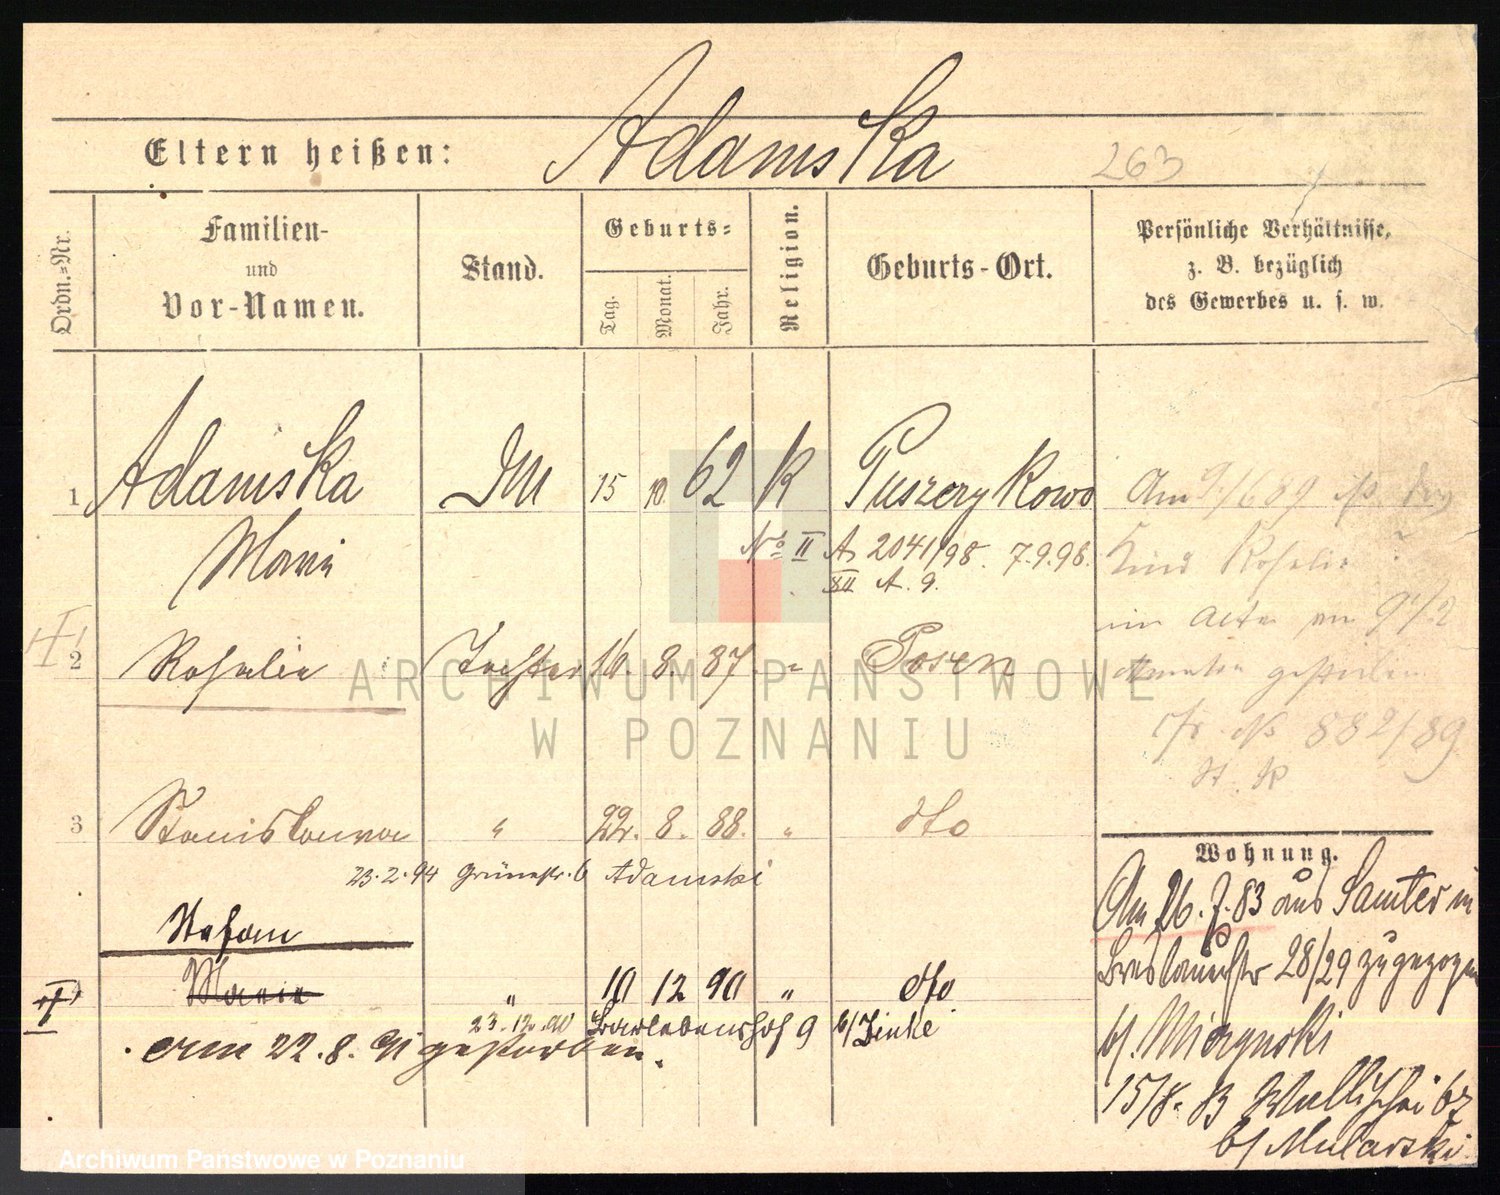 Adamska
Eltern heißen:
263
Ordn.-Nr.
Familien-
und
Vor-Namen.
Stand.
Geburts-
Tag.
Monat.
Jahr.
Religion.
Geburts-Ort.
Persönliche Verhältnisse,
z. B. bezüglich
des Gewerbes u. s. w.
1 Adamska 15 10. 62 K Puszczykowo
Marie
No II A 2041/98. 7.9.98.
XII A. 9.
Am ist das
Kind Rosalie
im Alter von 9 1/2
Monaten gestorben
No 882/89
St. A
2 Rosalie Tochter 16. 8. 87. " Posen
3 Stanislawa " 22. 8. 88. " dto
23.2.94 Grünestr. 6 Adamski
Stefan
Marie " 10 12 90 " dto
23.12.90 Barlebenshof 9 b/ Zinke
am 22.8.91 gestorben.
Wohnung.
Am 26.7.83 aus Samter in
Breslauerstr 28/29 zugezogen
b/.
15/8. 83 Wallischei 67
b/ Mularski
ARCHIWUM PAŃSTWOWE
W POZNANIU
Archiwum Państwowe w Poznaniu